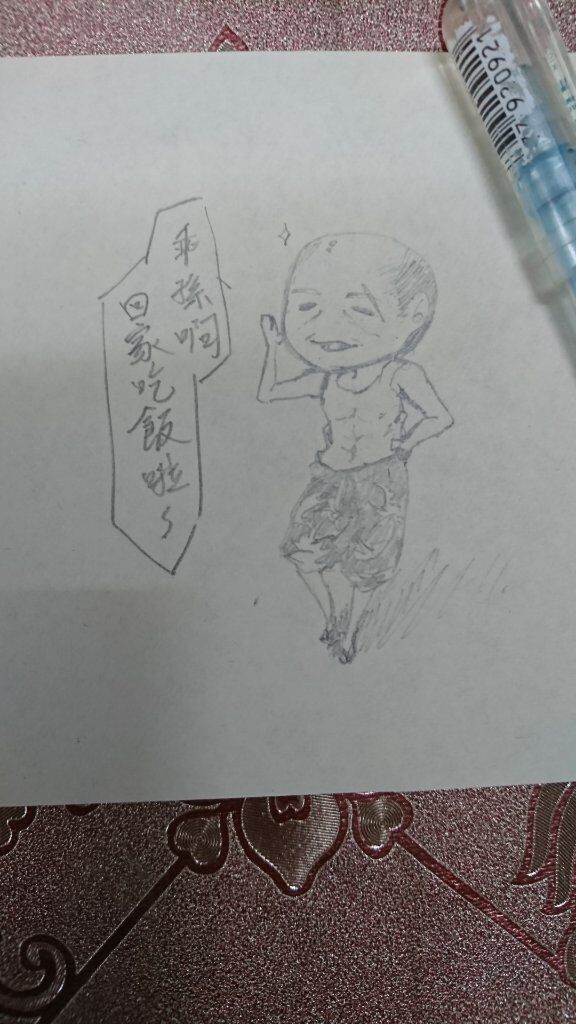 乖孫啊
回家吃飯啦~
77 920921